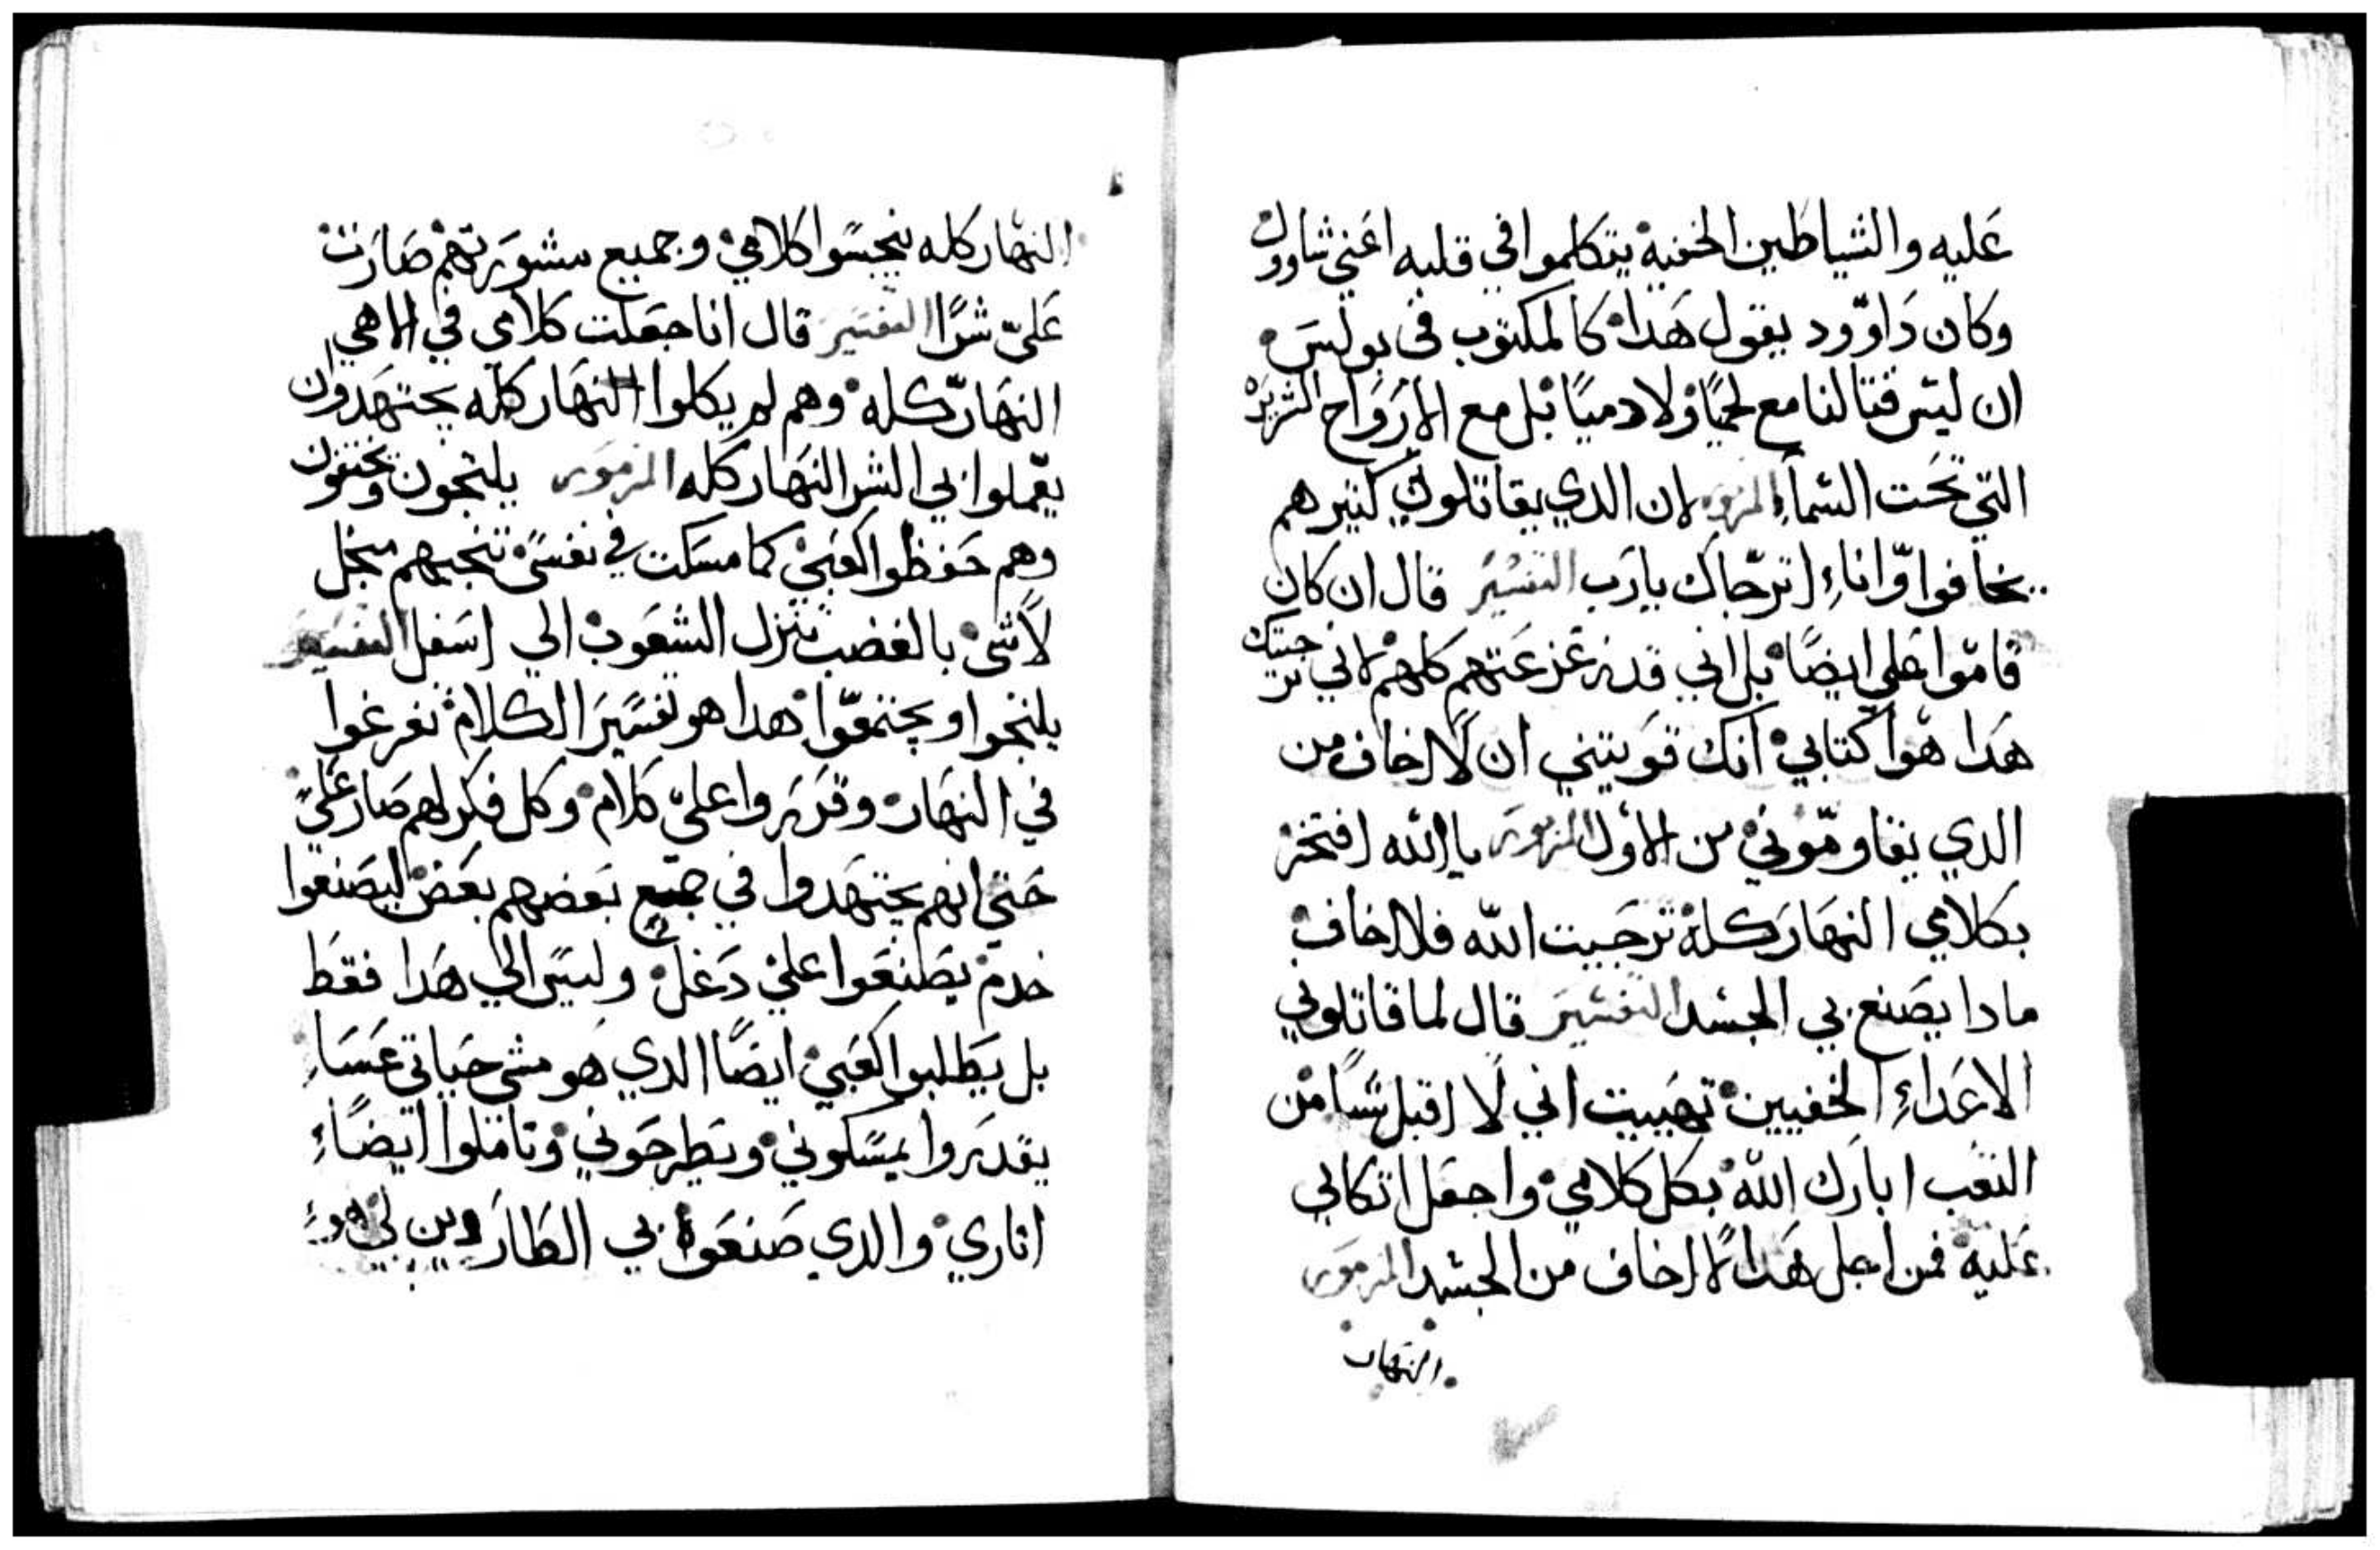 عليه والشياطين الخفية يتكلموا في قلبه اعني شاوول
وكان داوود يقول هدا كالمكتوب في بولس
ان ليس قتالنا مع لحميا ولادميا بل مع الارواح الشريره
التي تحت السماء المزمور لان الدي يقاتلوني كتير هم
يخافوا وانا اترجاك يارب التفسير قال ان كان
قاموا علي ايضا بل اني قد زعزعتهم كلهم لاني ترجيتك
هدا هوا كتابي انك قويتني ان لا اخاف من
الدي يقاوموني من الاول المزمور يا الله افتخر
بكلامي النهار كله ترجيت الله فلا اخاف
مادا يصنع بي الجسد التفسير قال لما قاتلوني
الاعداء الخفيين تهيبت اني لا اقبل شيا من
التعب ابارك الله بكل كلامي واجعل اتكالي
عليه فمن اجل هدا لا اخاف من الجسد المزمور
النهار
النهار كله ينجسوا كلامي وجميع مشورتهم صارت
علي شرا التفسير قال انا جعلت كلامي في الاهي
النهار كله وهم لم يكلوا النهار كله يجتهدوان
يعملوا بي الشر النهار كله المزمور يلتجون ويختفون
وهم حفظوا كعبي كما مسكت في نفسي تنجيهم منجل
لاشي بالغضب تنزل الشعوب الي اسفل التفسير
يلتجوا ويجتمعوا هدا هو تفسير الكلام تفرغوا
في النهار وقرروا علي كلام وكل فكر لهم صار علي
حتي انهم يجتهدوا في جميع بعضهم بعض ليصنعوا
خدم يصنعوا علي دغل وليس الي هدا فقط
بل يطلبوا كعبي ايضا الدي هو مشي حياتي عساء
يقدروا يمسكوني ويطرحوني وتاملوا ايضاء
اتاري والدي صنعوا بي الطاردين لي